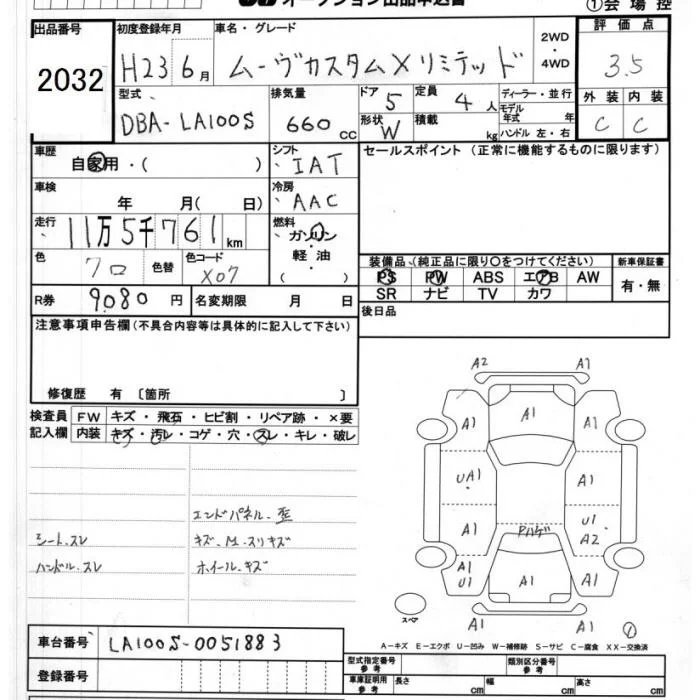 オークション出品申込書
①会場控
出品番号
2032
初度登録年月
H23 6月
車名・グレード
ムーヴカスタムXリミテッド
2WD
・
4WD
評価点
3.5
外装 内装
C C
型式
DBA-LA100S
排気量
660 cc
ドア 5
形状 W
定員 4 人
積載 kg
ディーラー・並行
モデル年式 年
ハンドル 左・右
車歴
自家用・( )
シフト
IAT
セールスポイント (正常に機能するものに限ります)
車検
年 月( 日)
冷房
AAC
走行
11万5千761km
燃料
ガソリン
軽油
( )
色
クロ
色替
色コード
X07
装備品 (純正品に限り○をつけてください)
PS PW ABS エアB AW
SR ナビ TV カワ
新車保証書
有・無
R券 9080 円
名変期限 月 日
後日品
注意事項申告欄(不具合内容等は具体的に記入して下さい)
修復歴 有 〔箇所 〕
検査員
記入欄
FW キズ・飛石・ヒビ割・リペア跡・×要
内装 キズ・汚レ・コゲ・穴・スレ・キレ・破レ
エンドパネル-歪
シート.スレ
キズ.M.スリキズ
ハンドル.スレ
ホイール.キズ
A2 A1
A1 A1 A1
UA1 A1
A1 Pハゲ U1
A2
A1
U1
A1 A1
A1 A1
スペア
A-キズ E-エクボ U-凹み W-補修跡 S-サビ C-腐食 XX-交換済
車台番号 LA100S-0051883
登録番号
型式指定番号
参考
類別区分番号
参考
車庫証明用
参考
長さ cm 幅 cm 高さ cm